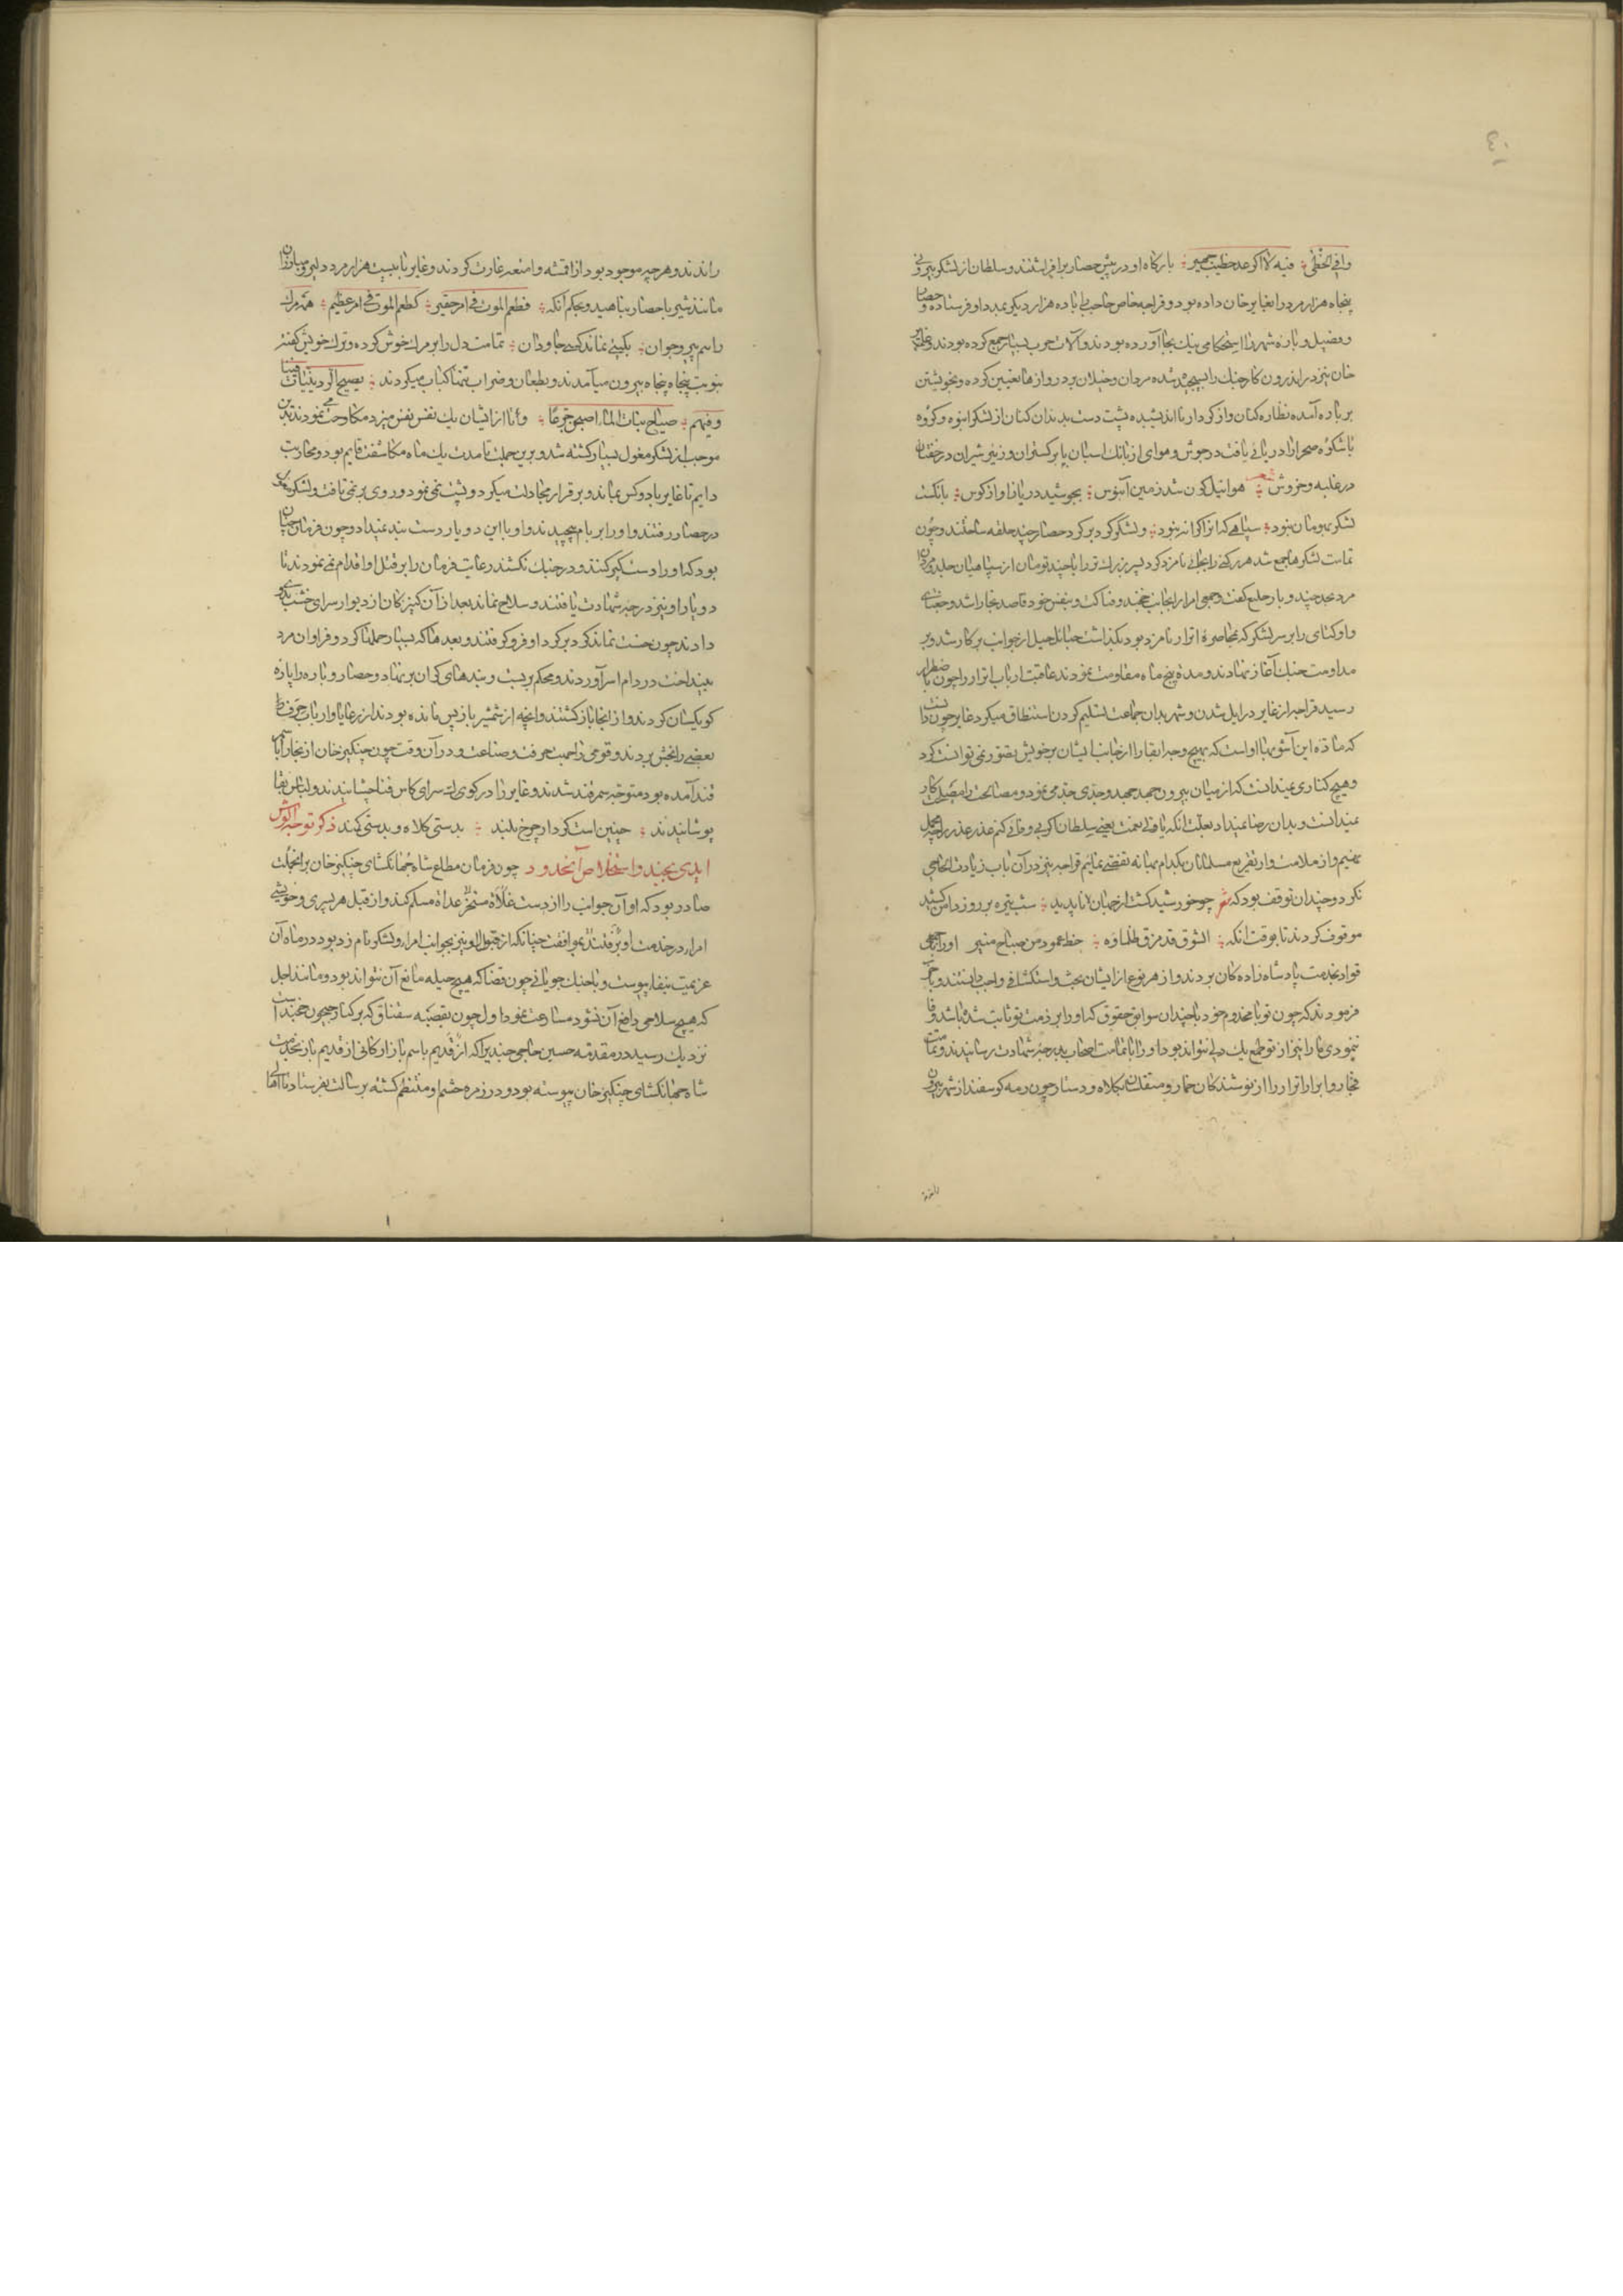 ٤٠
وافی الخطی فیه لالا کو عد خطیب جهیر بارکاه او در پیش حصار برافراشتند و سلطان از لشکر بیرونی
پنجاه هزار مرد را بغایر خان داده بود و قراجه خاص حاجب را با ده هزار دیگر بمدد او فرستاده و حصار
و فصیل و باره شهر را استحکامی نیک بجا آورده بودند و آلات حرب بسیار جمع کرده بودند و غایر
خان نیز در اندرون کار جنک را بسیجیده شده مردان و خیلان بر دروازها تعیین کرده و بخویشتن
بر باره آمده نظاره کنان و از کردار نا اندیشیده پشت دست بدندان کنان از لشکر انبوه و کروه
با شکوه صحرا را دریائی یافت در جوش و هوای از بانک اسبان با برکستوان و زئیر شیران در خفتان
در غلبه و خروش شعر هوا نیل کون شد زمین آبنوس بجوشید دریا ز آواز کوس بانکشت
لشکر بهومان نمود سپاهی که انرا کرانه نبود و لشکر کرد بر کرد حصار چند حلقه ساختند و چون
تمامت لشکرها جمع شد هر رکنی را بجانبی نامزد کرد پسر بزرک تر را با چند تومان از سپاهیان جلد و مردان
مرد بحد جند و بارجلیغ کفت و جمعی امرا را بجانب خجند و فناکت و بنفس خود قاصد بخارا شد و جغتای
و اوکتای را بر سر لشکر که بمحاصره اترار نامزد بود بگذاشت جنبانل خیل از جوانب بر کار شد و بر
مداومت جنک آغاز نهادند و مدة پنج ماه مقاومت نمودند عاقبت ارباب اترار را چون کار باضطرار
رسید قراجه از غایر در ایل شدن و شهر بدان جماعت تسلیم کردن استنطاق میکرد غایر چون دانست
که ماده این آشوبها او است که بهیچ وجه ابقا را از جانب ایشان بر خویش تصور نمی توانست کرد
و هیچ کناری نمیدانست که از میان بیرون جهد جهد جهید و جدی جدی می نمود و مصالحت را مصلحت کار
نمیدانست و بدان رضا نمیداد بعلت انکه با ولی نعمت یعنی سلطان اکر بی وفائی کنم عذر غدر بر چه محمل
نهیم و از ملامت و از تقریع مسلمانان بکدام بهانه تفصی نمائیم قراجه نیز در آن باب زیادت الحاحی
نکرد و چندان توقف بود که شعر چو خورشید کشت از جهان ناپدید شب تیره بر روز دامن کشید
موقوف کردند تا بوقت انکه الشوق قد مزق ظلماؤه خط عمود من صباح منیر او را با جمعی
قواد بخدمت پادشاه زاده کان بردند و از هر نوع از ایشان بحث و استکشافی واجب دانستند و باخر
فرمودند که چون تو با مخدوم خود با چندان سوابق حقوق که او را بر ذمت تو ثابت شده باشد وفا
ننمودی ما را نیز از تو طمع یک دلی نتواند بود او را با تمامت اصحاب بدرجه شهادت رسانیدند و تمامت
فجار و ابرار اترار را از پوشندکان خمار و متقلدان بکلاه و دستار چون رمه کوسفند از شهر بیرون
راندند و هر چه موجود بود از اقمشه و امتعه غارت کردند و غایر با بیست هزار مرد دلیر و مبارزان
مانند شیر با حصار پناهید و بحکم آنکه فطعم الموت فی امر حقیر کطعم الموت فی امر عظیم همه مرک
را سم پیر و جوان بکیتی نماند کسی جاودان تمامت دل را بر مرک خوش کرده و ترک خویش کفته
بنوبت پنجاه پنجاه بیرون می آمدند و بطعان و ضراب تنها کباب میکردند یصیح الردینیات فینا
و فیهم صیاح بنات الماء اصبحن جوعا و تا از ایشان یک نفس نفس میزد مکاوحت می نمودند بدین
موجب از لشکر مغول بسیار کشته شد و برین جملت تا مدت یک ماه مکاشفت قایم بود و محاربت
دایم تا غایر با دو کس بماند و بر قرار مجادلت میکرد و پشت نمی نمود و روی بر نمی تافت و لشکر مغول
در حصار رفتند و او را بر بام پیچیدند و او با این دو یار دست ببند نمیداد و چون فرمان چنان
بود که او را دستکیر کنند و در جنک نکشند رعایت فرمان را بر قتل او اقدام نمی نمودند تا
دو یار او نیز درجه شهادت یافتند و سلاح نماند بعد از آن کنیزکان از دیوار سرای خشت بدو
دادند چون خشت نماند کرد بر کرد او فرو کرفتند و بعد ما که بسیار حملها کرد و فراوان مرد
بینداخت در دام اسر آوردند و محکم بر بست و بندهای کران بر نهاد و حصار و باره را با ره
کو یکسان کردند و از آنجا باز کشتند و آنچه از شمشیر باز پس مانده بودند از رعایا و ارباب حرف را
بعضی را بخش بردند و قومی را جهت حرفت و صناعت و در آن وقت چون چنکیز خان از بخارا با سمر
قند آمده بود متوجه سمرقند شدند و غایر را در کوک سرای کاس فنا چشانیدند و لباس بقا
پوشانیدند چنین است کردار چرخ بلند بدستی کلاه و بدستی کمند ذکر توجه الوش
ایدی بجند و استخلاص آنحدود چون فرمان مطاع شاه جهانکشای چنکیز خان بر انجملت
صادر بود که او آن جوانب را از دست غلاة مستخر عداة مسلم کند و از قبل هر پسری و خویشی
امرا در خدمت او برفتند بموافقت چنانکه از قبل او نیز بجوانب امرا و لشکر نام زد بود در ماه آن
عزیمت بنفاذ پیوست و با جنک جویانی چون قضا که هیچ حیله مانع آن نتواند بود و مانند اجل
که هیچ سلاحی دافع آن نشود مسارعت نمود اول چون بقصبه سقناق که بر کنار جیحون خجند است
نزدیک رسید در مقدمه حسین حاجی جند یرا که از قدیم باسم بازارکانی از قدیم باز بخدمت
شاه جهانکشای چنکیز خان پیوسته بود و در زمره حشم او منتظم کشته برسالت بفرستاد تا اهالی